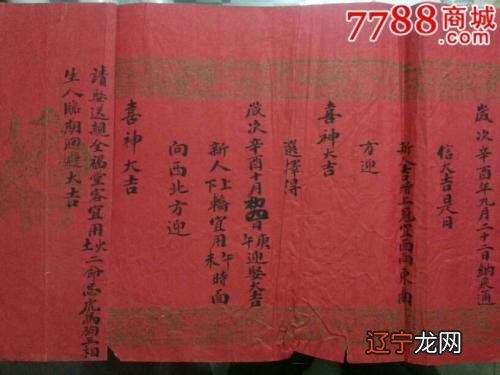 歲次辛酉年九月二十二日納采通
信大吉是日
新人上宜面向東南
方迎
喜神大吉
選擇得
歲次辛酉十月初四日庚午迎娶大吉
新人上下輪宜用午未時面
向西北方迎
喜神大吉
請娶送親全福堂客宜用火土二命忌虎馬狗三相
生人臨期迴避大吉
7788商城
辽宁龙网